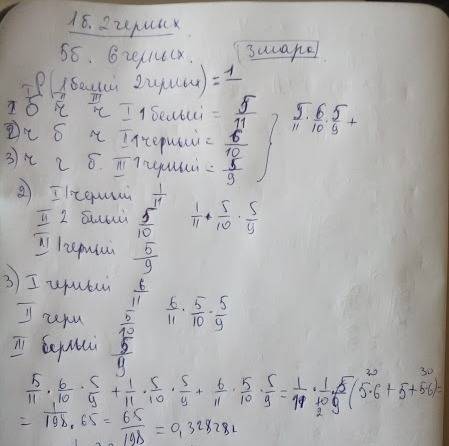 1б. 2черных
5б. 6черных. 3шара
P(1белый 2черных)=1
I II III
1 б ч ч I 1белый = 5/11
2) ч б ч II 1черный = 6/10
3) ч ч б. III 1черный = 5/9
5/11 · 6/10 · 5/9 +
2) I 1черный 1/11
II 2 белый 5/10 1/11 · 5/10 · 5/9
III 1черный 5/9
3) I черный 6/11
II черн 5/10 6/11 · 5/10 · 5/9
III белый 5/9
5/11 · 6/10 · 5/9 + 1/11 · 5/10 · 5/9 + 6/11 · 5/10 · 5/9 = 1/11 · 1/10 · 5/9 (5·6 + 5 + 5·6) =
30 30
2
= 1/198 · 65 = 65/198 = 0,328281